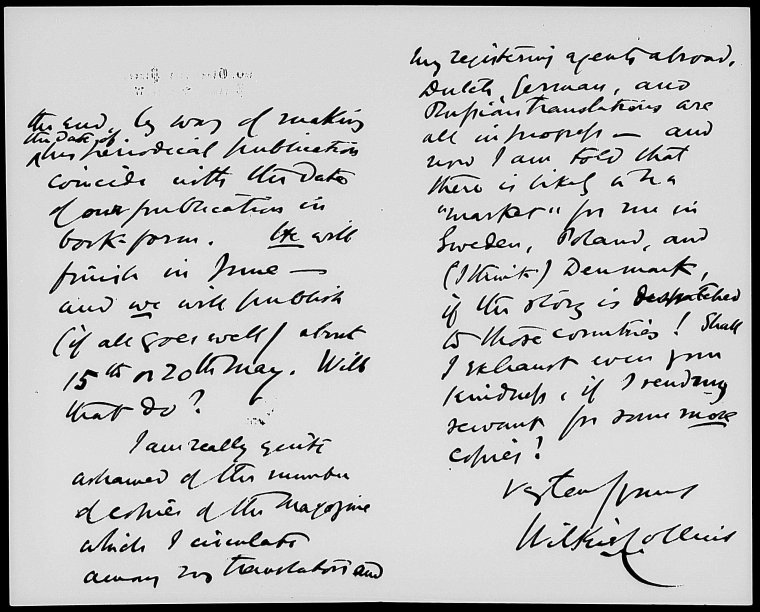 the End, by way of making
the date of
his periodical publication
coincide with the date
of our publication in
book-form. He will
finish in June —
and we will publish
(if all goes well) about
15th or 20th May. Will
that do?
I am really quite
ashamed of the number
of copies of the Magazine
which I circulate
among my translators and
my registering agents abroad.
Dutch, German, and
Russian translations are
all in progress — and
now I am told that
there is likely to be a
"market" for me in
Sweden, Poland, and
(I think) Denmark,
if the story is despatched
to those countries! Shall
I exhaust even your
kindness, if I send my
servant for some more
copies?
Yours
Wilkie Collins